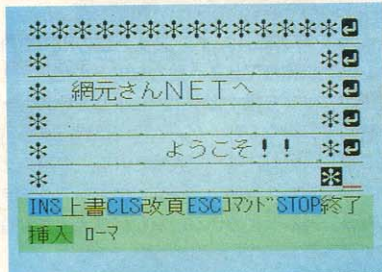 ＊＊＊＊＊＊＊＊＊＊＊＊＊＊↵
＊ ＊↵
＊ 網元さんＮＥＴへ ＊↵
＊ ＊↵
＊ ようこそ！！ ＊↵
＊ ＊
INS上書CLS改頁ESCｺﾏﾝﾄﾞSTOP終了
挿入 ﾛｰﾏ